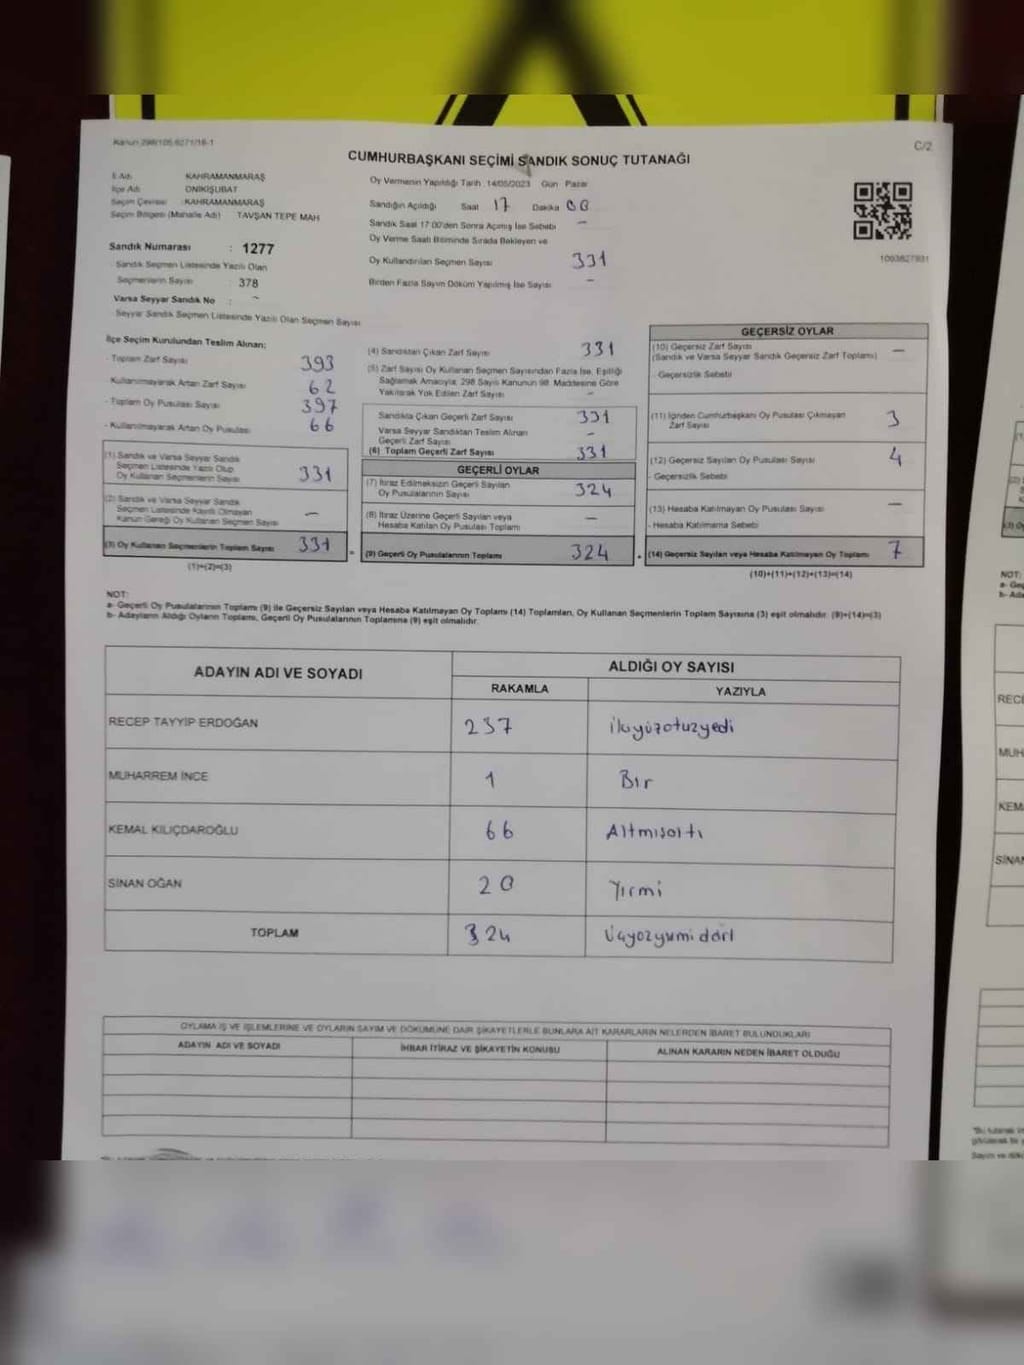 Kanun 298/105.6271/16-1
C/2
CUMHURBAŞKANI SEÇİMİ SANDIK SONUÇ TUTANAĞI
İl Adı KAHRAMANMARAŞ
İlçe Adı ONİKİŞUBAT
Seçim Çevresi :KAHRAMANMARAŞ
Seçim Bölgesi (Mahalle Adı) TAVŞAN TEPE MAH
Sandık Numarası : 1277
Sandık Seçmen Listesinde Yazılı Olan
Seçmenlerin Sayısı : 378
Varsa Seyyar Sandık No : -
Seyyar Sandık Seçmen Listesinde Yazılı Olan Seçmen Sayısı
Oy Vermenin Yapıldığı Tarih :14/05/2023 Gün Pazar
Sandığın Açıldığı Saat 17 Dakika 00
Sandık Saat 17:00'den Sonra Açılmış İse Sebebi -
Oy Verme Saati Bitiminde Sırada Bekleyen ve
Oy Kullandırılan Seçmen Sayısı 331
Birden Fazla Sayım Döküm Yapılmış İse Sayısı -
1093827931
İlçe Seçim Kurulundan Teslim Alınan:
- Toplam Zarf Sayısı 393
Kullanılmayarak Artan Zarf Sayısı 62
- Toplam Oy Pusulası Sayısı 397
- Kullanılmayarak Artan Oy Pusulası 66
(1) Sandık ve Varsa Seyyar Sandık
Seçmen Listesinde Yazılı Olup
Oy Kullanan Seçmenlerin Sayısı 331
(2) Sandık ve Varsa Seyyar Sandık
Seçmen Listesinde Kayıtlı Olmayan
Kanun Gereği Oy Kullanan Seçmen Sayısı -
(3) Oy Kullanan Seçmenlerin Toplam Sayısı 331
(1)+(2)=(3)
(4) Sandıktan Çıkan Zarf Sayısı 331
(5) Zarf Sayısı Oy Kullanan Seçmen Sayısından Fazla İse, Eşitliği
Sağlamak Amacıyla, 298 Sayılı Kanunun 98. Maddesine Göre
Yakılarak Yok Edilen Zarf Sayısı -
Sandıkta Çıkan Geçerli Zarf Sayısı 331
Varsa Seyyar Sandıktan Teslim Alınan
Geçerli Zarf Sayısı -
(6) Toplam Geçerli Zarf Sayısı 331
GEÇERLİ OYLAR
(7) İtiraz Edilmeksizin Geçerli Sayılan
Oy Pusulalarının Sayısı 324
(8) İtiraz Üzerine Geçerli Sayılan veya
Hesaba Katılan Oy Pusulası Toplamı -
= (9) Geçerli Oy Pusulalarının Toplamı 324
GEÇERSİZ OYLAR
(10) Geçersiz Zarf Sayısı
(Sandık ve Varsa Seyyar Sandık Geçersiz Zarf Toplamı) -
- Geçersizlik Sebebi
(11) İçinden Cumhurbaşkanı Oy Pusulası Çıkmayan
Zarf Sayısı 3
(12) Geçersiz Sayılan Oy Pusulası Sayısı 4
- Geçersizlik Sebebi
(13) Hesaba Katılmayan Oy Pusulası Sayısı -
- Hesaba Katılmama Sebebi
+ (14) Geçersiz Sayılan veya Hesaba Katılmayan Oy Toplamı 7
(10)+(11)+(12)+(13)=(14)
NOT:
a- Geçerli Oy Pusulalarının Toplamı (9) ile Geçersiz Sayılan veya Hesaba Katılmayan Oy Toplamı (14) Toplamları, Oy Kullanan Seçmenlerin Toplam Sayısına (3) eşit olmalıdır. (9)+(14)=(3)
b- Adayların Aldığı Oyların Toplamı, Geçerli Oy Pusulalarının Toplamına (9) eşit olmalıdır.
ADAYIN ADI VE SOYADI
ALDIĞI OY SAYISI
RAKAMLA YAZIYLA
RECEP TAYYİP ERDOĞAN 237 ikiyüzotuzyedi
MUHARREM İNCE 1 Bir
KEMAL KILIÇDAROĞLU 66 Altmışaltı
SİNAN OĞAN 20 Yirmi
TOPLAM 324 Üçyüzyirmi dört
OYLAMA İŞ VE İŞLEMLERİNE VE OYLARIN SAYIM VE DÖKÜMÜNE DAİR ŞİKAYETLERLE BUNLARA AİT KARARLARIN NELERDEN İBARET BULUNDUKLARI
ADAYIN ADI VE SOYADI
İHBAR İTİRAZ VE ŞİKAYETİN KONUSU
ALINAN KARARIN NEDEN İBARET OLDUĞU
NOT: